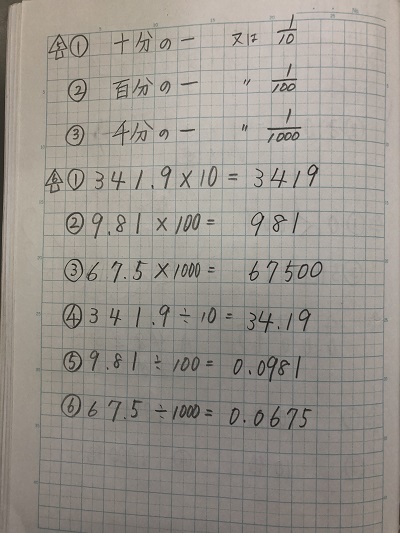 5 ① 十分の一 又は 1/10
② 百分の一 〃 1/100
③ 千分の一 〃 1/1000
6 ① 341.9×10= 3419
② 9.81×100= 981
③ 67.5×1000= 67500
④ 341.9÷10= 34.19
⑤ 9.81÷100= 0.0981
⑥ 67.5÷1000= 0.0675